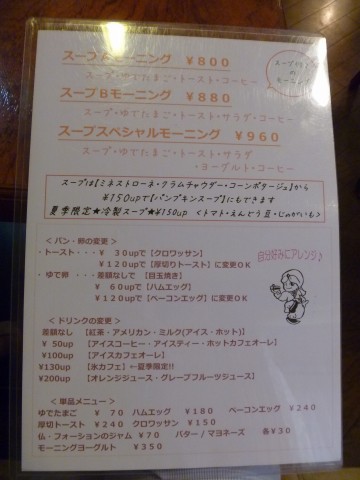 スープAモーニング ￥800
スープ・ゆでたまご・トースト・コーヒー
スープ付き
の
モーニング
スープBモーニング ￥880
スープ・ゆでたまご・トースト・サラダ・コーヒー
スープスペシャルモーニング ￥960
スープ・ゆでたまご・トースト・サラダ
・ヨーグルト・コーヒー
スープは【ミネストローネ・クラムチャウダー・コーンポタージュ】から
￥150upで【パンプキンスープ】にもできます
夏季限定★冷製スープ★￥150up <トマト・えんどう豆・じゃがいも>
<パン・卵の変更>
・トースト・・・ ￥30upで【クロワッサン】
￥120upで【厚切りトースト】に変更OK
・ゆで卵 ・・・差額なしで【目玉焼き】
￥60upで【ハムエッグ】
￥120upで【ベーコンエッグ】に変更OK
自分好みにアレンジ♪
<ドリンクの変更>
差額なし 【紅茶・アメリカン・ミルク(アイス・ホット)】
￥50up 【アイスコーヒー・アイスティー・ホットカフェオーレ】
￥100up 【アイスカフェオーレ】
￥130up 【氷カフェ】←夏季限定!!
￥200up 【オレンジジュース・グレープフルーツジュース】
<単品メニュー>
ゆでたまご ￥70 ハムエッグ ￥180 ベーコンエッグ ￥240
厚切トースト ￥240 クロワッサン ￥150
仏・フォーションのジャム ￥70 バター/マヨネーズ 各￥30
モーニングヨーグルト ￥350